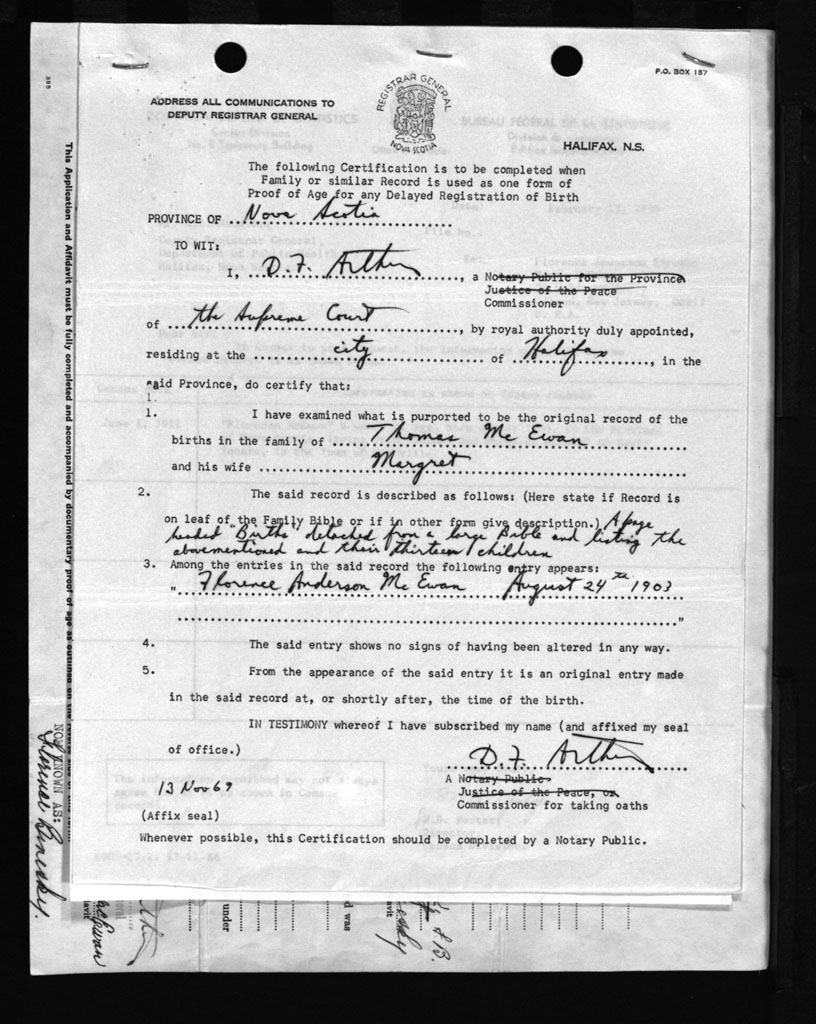 P.O. BOX 157
ADDRESS ALL COMMUNICATIONS TO
DEPUTY REGISTRAR GENERAL
REGISTRAR GENERAL
NOVA SCOTIA
HALIFAX, N.S.
The following Certification is to be completed when
Family or similar Record is used as one form of
Proof of Age for any Delayed Registration of Birth
PROVINCE OF Nova Scotia
TO WIT:
I, D.F. Arthur, a Notary Public for the Province
Justice of the Peace
Commissioner
of the Supreme Court, by royal authority duly appointed,
residing at the city of Halifax, in the
said Province, do certify that:
1.
1. I have examined what is purported to be the original record of the
births in the family of Thomas Mc Ewan
and his wife Margret
2. The said record is described as follows: (Here state if Record is
on leaf of the Family Bible or if in other form give description.) A page
headed "Births" detached from a large Bible and listing the
abovementioned and their thirteen children
3. Among the entries in the said record the following entry appears:
" Florence Anderson Mc Ewan August 24th 1903
"
4. The said entry shows no signs of having been altered in any way.
5. From the appearance of the said entry it is an original entry made
in the said record at, or shortly after, the time of the birth.
IN TESTIMONY whereof I have subscribed my name (and affixed my seal
of office.)
D.F. Arthur
A Notary Public
Justice of the Peace, or
Commissioner for taking oaths
13 Nov 69
(Affix seal)
Whenever possible, this Certification should be completed by a Notary Public.
This Application and Affidavit must be fully completed and accompanied by documentary proof of age as outlined on the
NOW KNOWN AS:
Florence
McEwan
under
d was